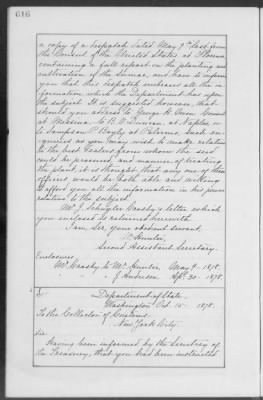 616
a copy of a despatch dated May 7th last, from
the Consul of the United States at Palermo
containing a full report on the planting and
cultivation of the Sumac, and have to inform
you that this despatch embraces all the in-
formation which the Department has upon
the subject. It is suggested however, that
should you address to George H. Owen Consul
at Messina, to B. O. Duncan, at Naples, or
to Sampson P. Bayly at Palermo, such en-
quiries as you may wish to make relative
to the best dealers from whom the seed
could be procured, and manner of treating
the plant, it is thought that any one of these
officers would be both able and willing
to afford you all the information in his power
relative to the subject.
Mr. J. Schuyler Crosby's letter which
you enclosed is returned herewith.
I am, Sir, your obedient servant,
W. Hunter,
Second Assistant Secretary.
Enclosures:
Mr. Crosby to Mr. Hunter, May 9. 1878.
" " " J. Anderson, Apl. 20. 1878.
Department of State,
Washington, Oct. 15. 1878.
To the Collector of Customs,
New York City.
Sir:
Having been informed by the Secretary of
the Treasury, that you had been instructed